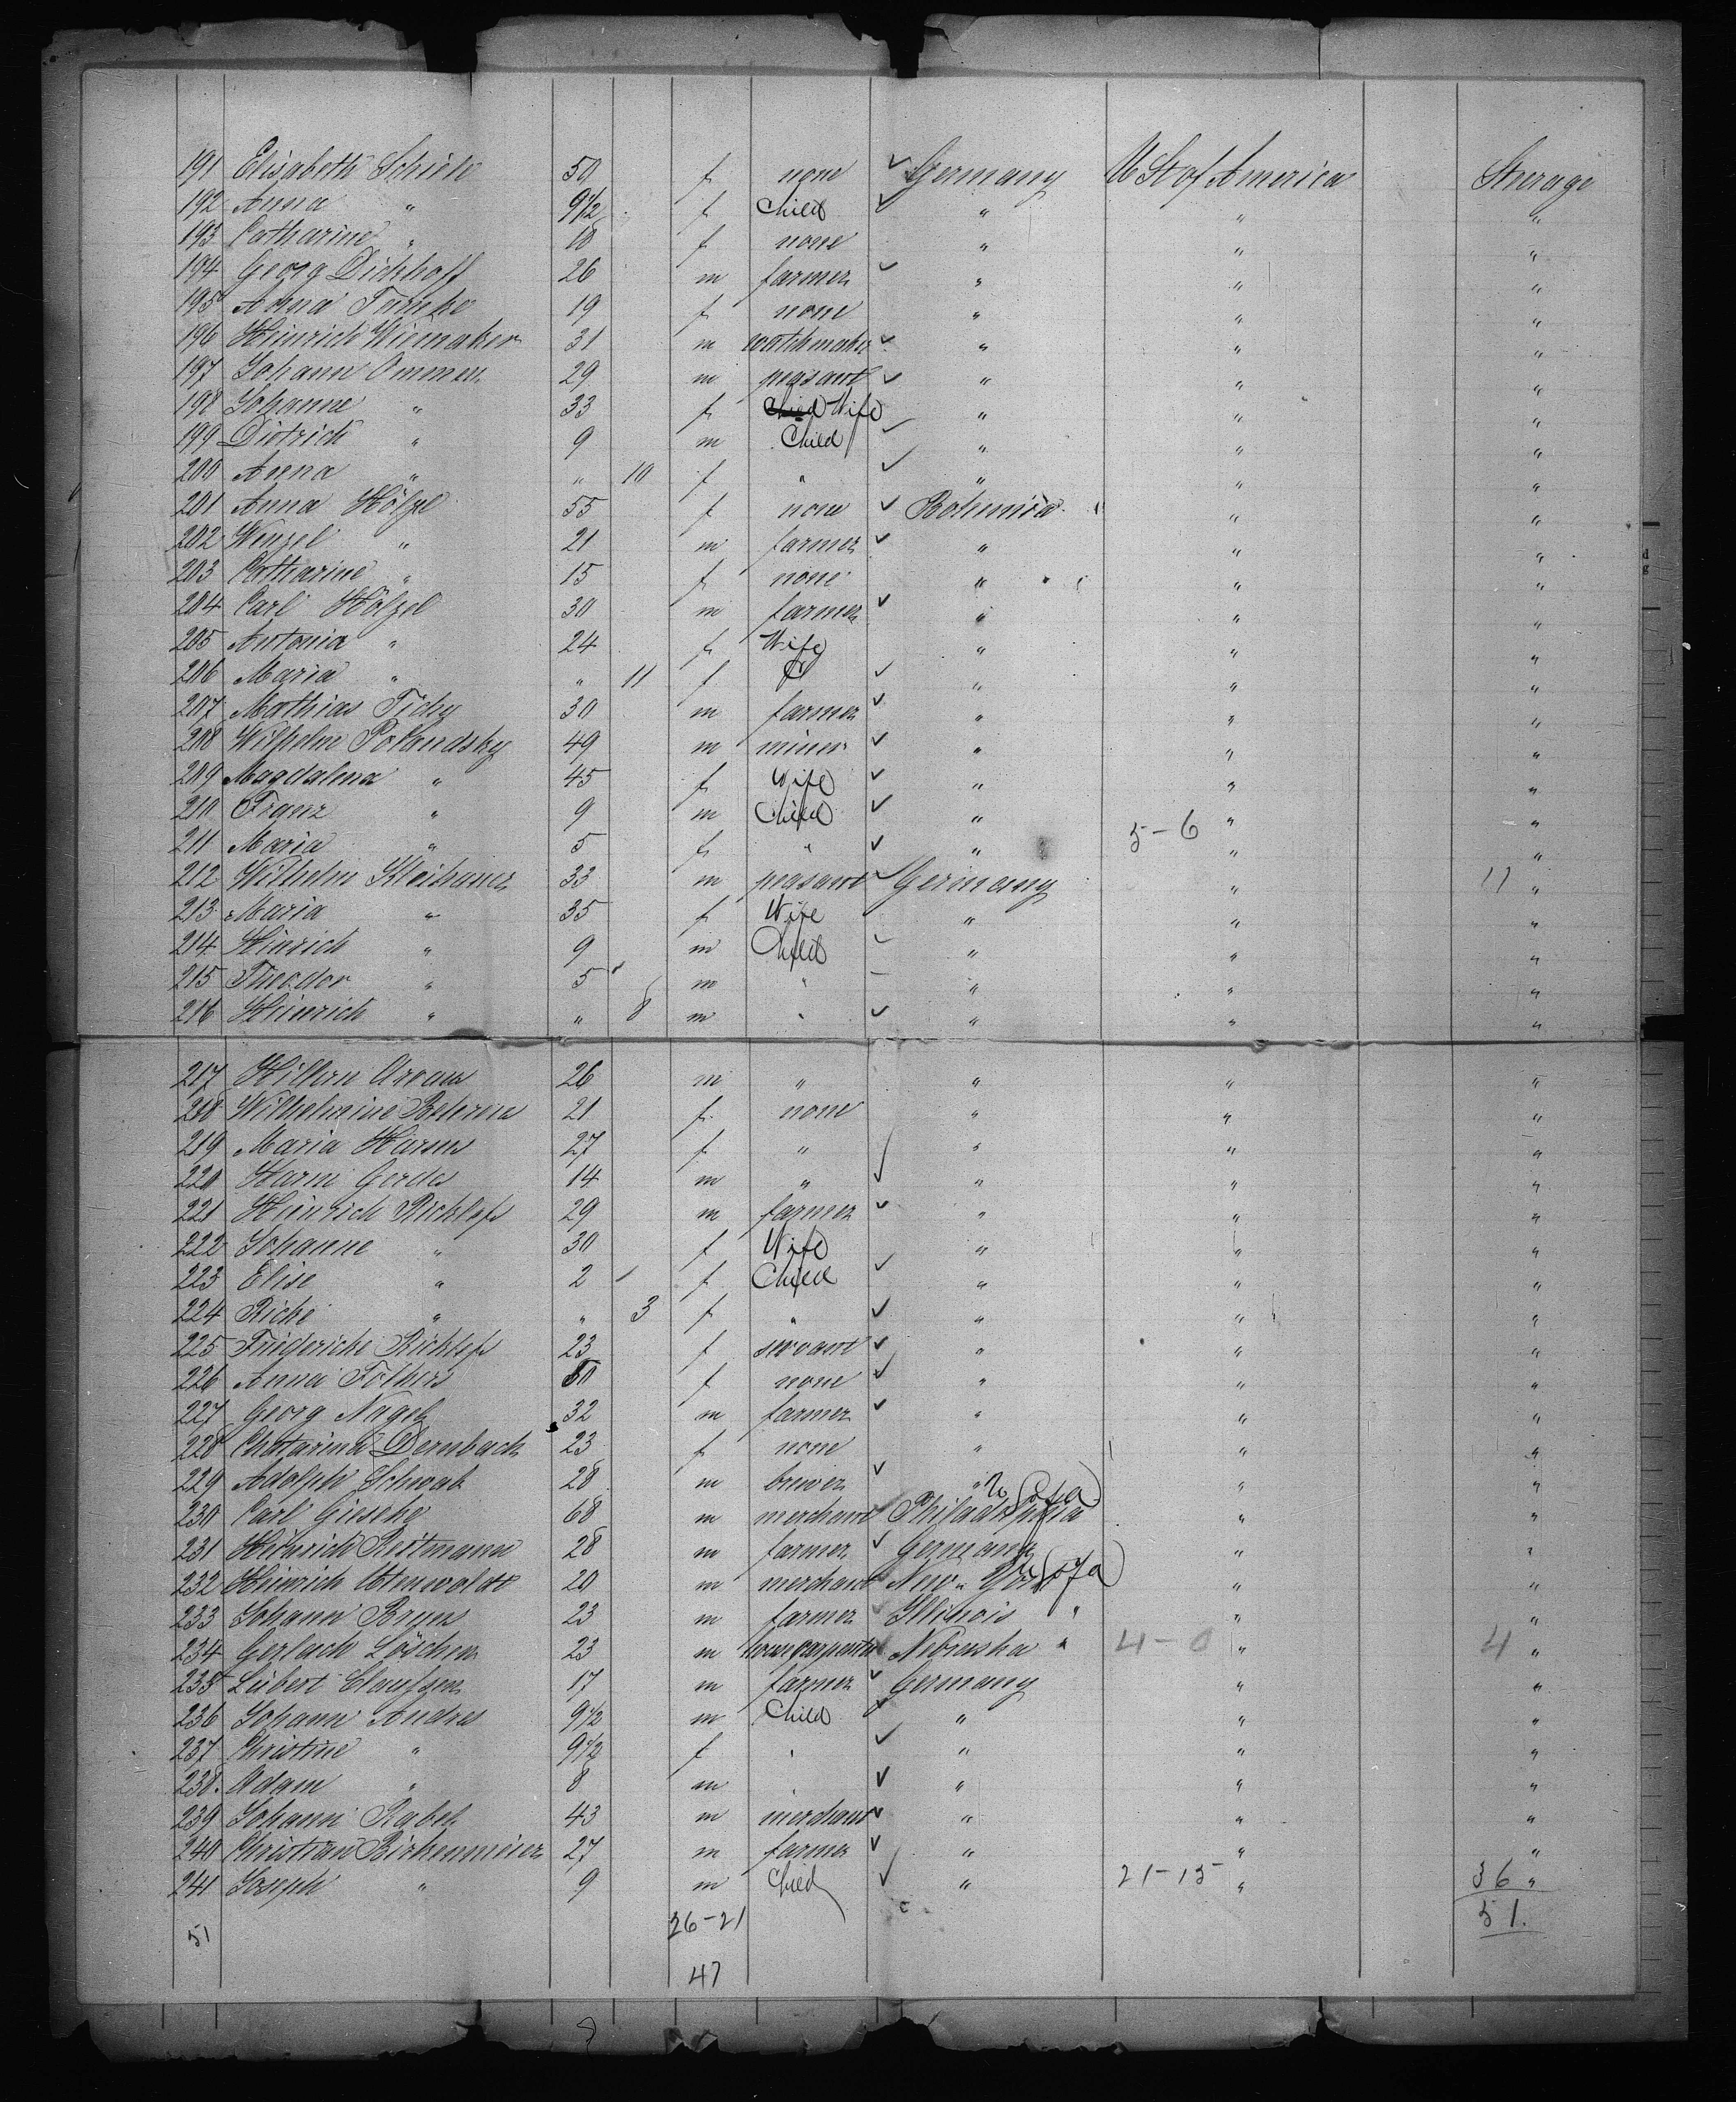 191 Elisabeth Schiele 50 f none ✓ Germany U St of America Sterage
192 Anna " 9 1/2 f Child ✓ " " "
193 Catharine " 18 f none " " "
194 Georg Dickhoff 26 m farmer ✓ " " "
195 Anna 19 f none " " "
196 Heinrich Wiemaker 31 m watchmaker ✓ " " "
197 Johann Ommen 29 m peasant ✓ " " "
198 Johanne " 33 f Child Wife " " "
199 Dietrich " 9 m Child ✓ " " "
200 Anna " " 10 f " ✓ " " "
201 Anna Hölzl 55 f none ✓ Bohemia " " "
202 Wenzel " 21 m farmer ✓ " " "
203 Catharine " 15 f none " " "
204 Carl Hölzel 30 m farmer ✓ " " "
205 Antonia " 24 f Wife " " "
206 Maria " " 11 f C ✓ " " "
207 Mathias Ticky 30 m farmer ✓ " " "
208 Wilhelm 49 m miner ✓ " " "
209 Magdalena " 45 f Wife ✓ " " "
210 Franz " 9 m Child ✓ " " "
211 Maria " 5 f " ✓ " 5-6 " "
212 Wilhelm 33 m peasant ✓ Germany " 11 "
213 Maria " 35 f Wife " " "
214 Hinrich " 9 m Child ✓ " " "
215 Theodor " 5 m " " " "
216 Heinrich " " 8 m " ✓ " " "
217 26 m " " " "
218 Wilhelmine Behrens 21 f none " " "
219 Maria Harms 27 f " " " "
220 Harm Gerdes 14 m " ✓ " " "
221 Heinrich Ricklefs 29 m farmer ✓ " " "
222 Johanne " 30 f Wife " " "
223 Elise " 2 f Child ✓ " " "
224 Ricke " " 3 f " ✓ " " "
225 Friedericke Ricklefs 23 f servant ✓ " " "
226 Anna 50 f none ✓ " " "
227 Georg Nagel 32 m farmer ✓ " " "
228 Chatarina Dernbach 23 f none " " "
229 Adolph Schwab 28 m brewer ✓ " " "
230 Carl Gieseke 68 m merchant Philadelphia " "
231 Heinrich Reitmann 28 m farmer ✓ Germany " "
232 Heinrich 20 m merchant New York " "
233 Johann Bryn 23 m farmer Illinois " " "
234 Gerlach Löschen 23 m Nebraska " 4-0 " 4 "
235 Lübert Claussen 17 m farmer ✓ Germany " "
236 Johann Andres 9 1/2 m Child ✓ " " "
237 Christine " 9 1/2 f " ✓ " " "
238 Adam " 8 m " ✓ " " "
239 Johann Rabek 43 m merchant ✓ " " "
240 Christian Birkenmeier 27 m farmer ✓ " " "
241 Joseph " 9 m Child ✓ " 21-15 " 36 "
51 26-21 51.
47